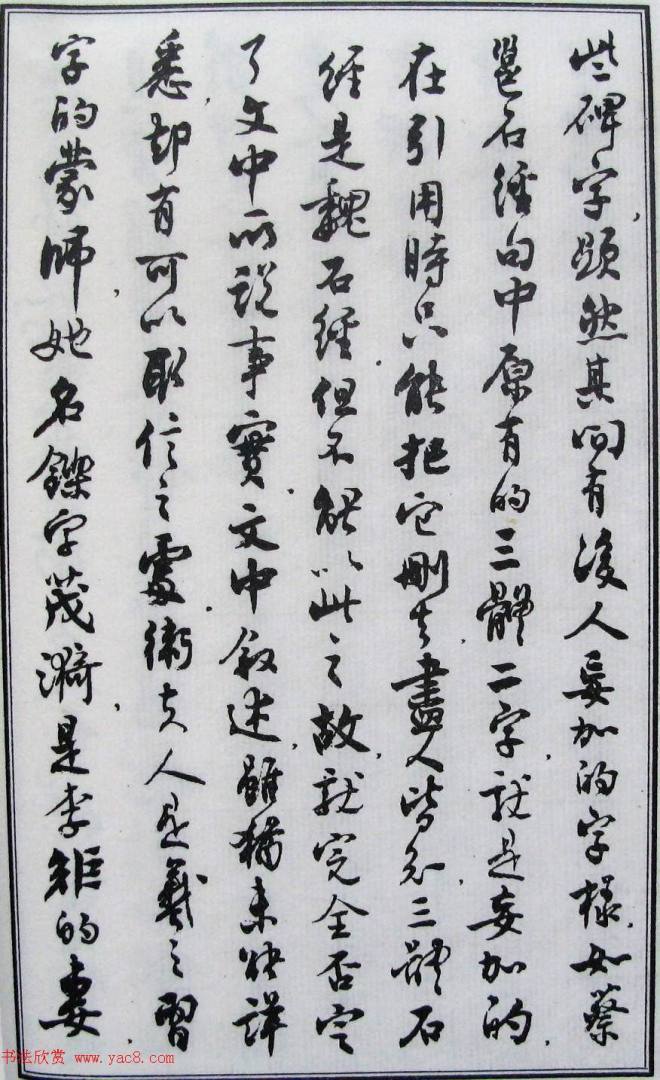 些碑字,顯然其間有後人妄加的字樣。如蔡
邕石經句中原有的三體二字,就是妄加的,
在引用時只能把它刪去。盡人皆知,三體石
經是魏石經,但不能以此之故,就完全否定
了文中所說事實。文中叙述,雖猶未能詳
悉,却有可以取信之處。衛夫人是羲之習
字的蒙師,她名鑠字茂漪,是李矩的妻。
书法欣赏 www.yac8.com